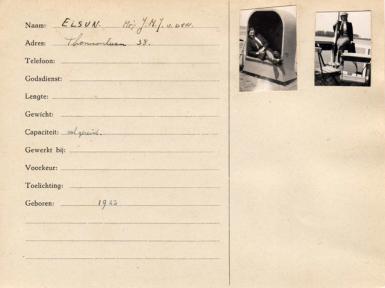 Naam: ELSEN. Mej J.M.J. v. den.
Adres: Thomsonlaan 38.
Telefoon:
Godsdienst:
Lengte:
Gewicht:
Capaciteit:
Gewerkt bij:
Voorkeur:
Toelichting:
Geboren: 1922